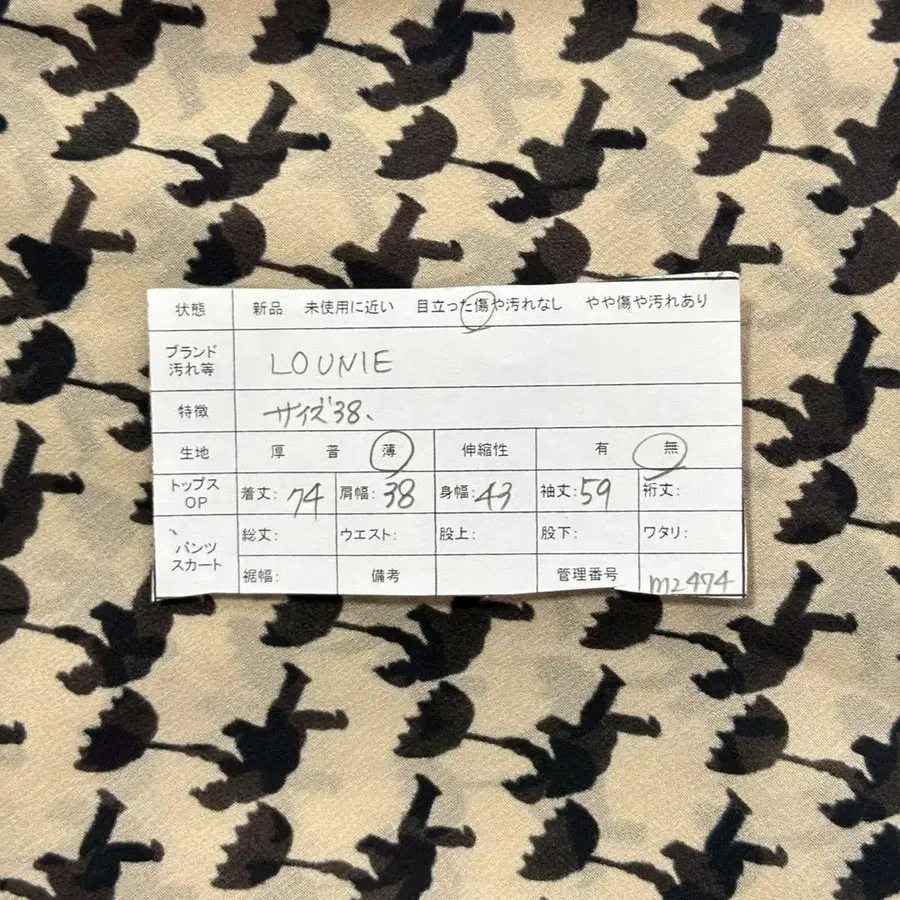 状態 新品 未使用に近い 目立った傷や汚れなし やや傷や汚れあり
ブランド
汚れ等 LOUNIE
特徴 サイズ38、
生地 厚 普 薄 伸縮性 有 無
トップス
OP 着丈: 74 肩幅: 38 身幅: 43 袖丈: 59 裄丈:
パンツ
スカート 総丈: ウエスト: 股上: 股下: ワタリ:
裾幅: 備考 管理番号 m2474